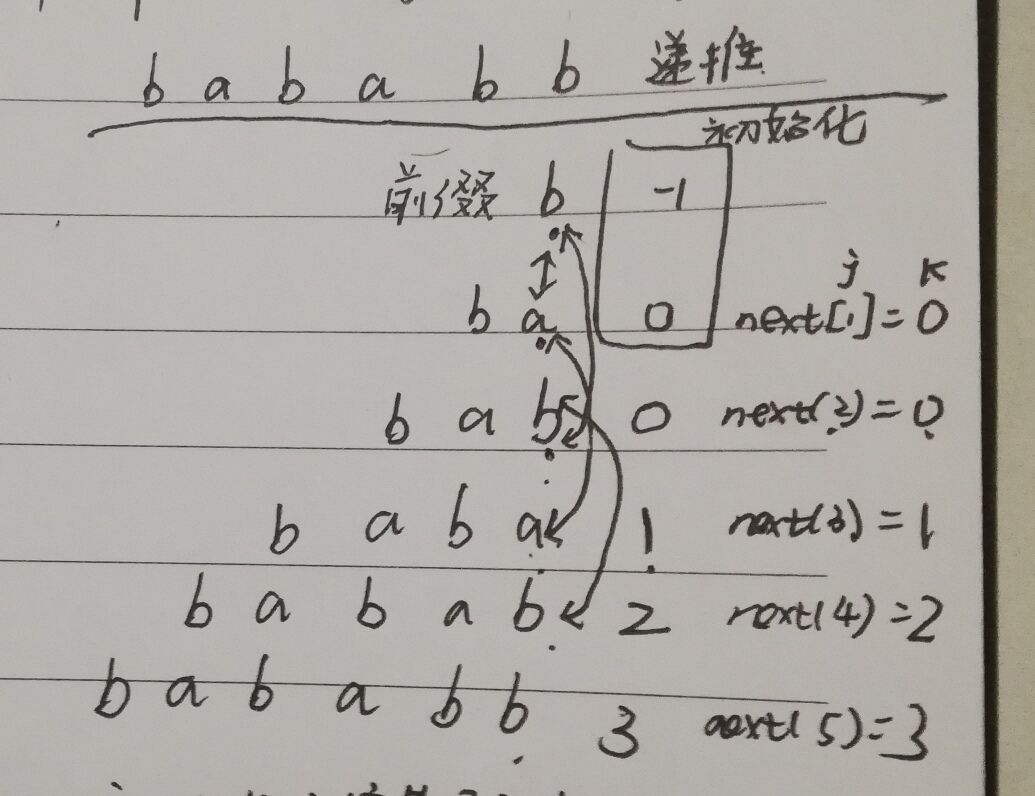 b a b a b b 递推
初始化
前缀 b -1
j k
b a 0 next[1]=0
b a b 0 next(2)=0
b a b a 1 next(3)=1
b a b a b 2 next(4)=2
b a b a b b 3 next(5)=3